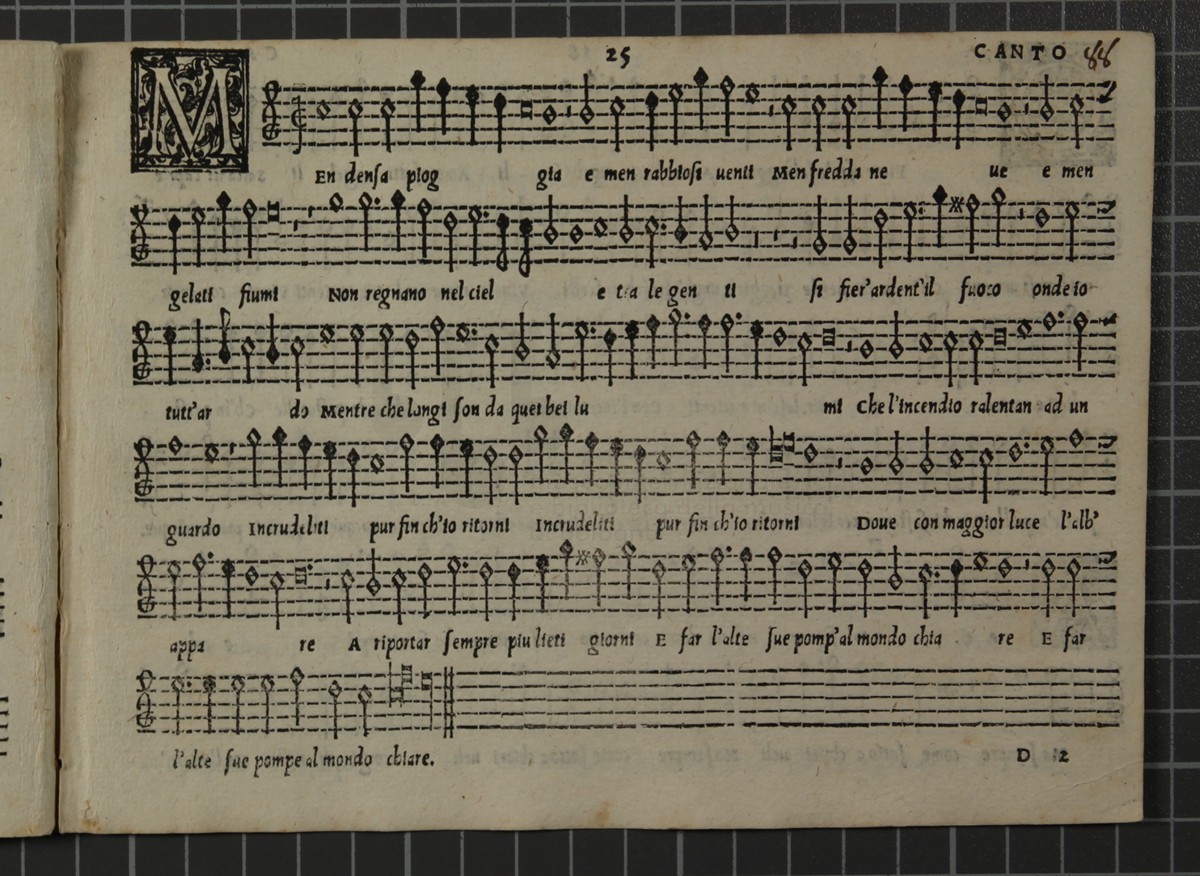 25
CANTO 88
MEn densa piog gia e men rabbiosi uenti Men fredda ne ue e men
gelati fiumi Non regnano nel ciel e tra le gen ti si fier'ardent'il fuoco onde io
tutt'ar do Mentre che longi son da quei bei lu mi Che l'incendio ralentan ad un
guardo Incrudeliti pur fin ch'io ritorni Incrudeliti pur fin ch'io ritorni Doue con maggior luce l'alb'
appa re A riportar sempre piu lieti giorni E far l'alte sue pomp'al mondo chia re E far
l'alte sue pompe al mondo chiare.
D 2